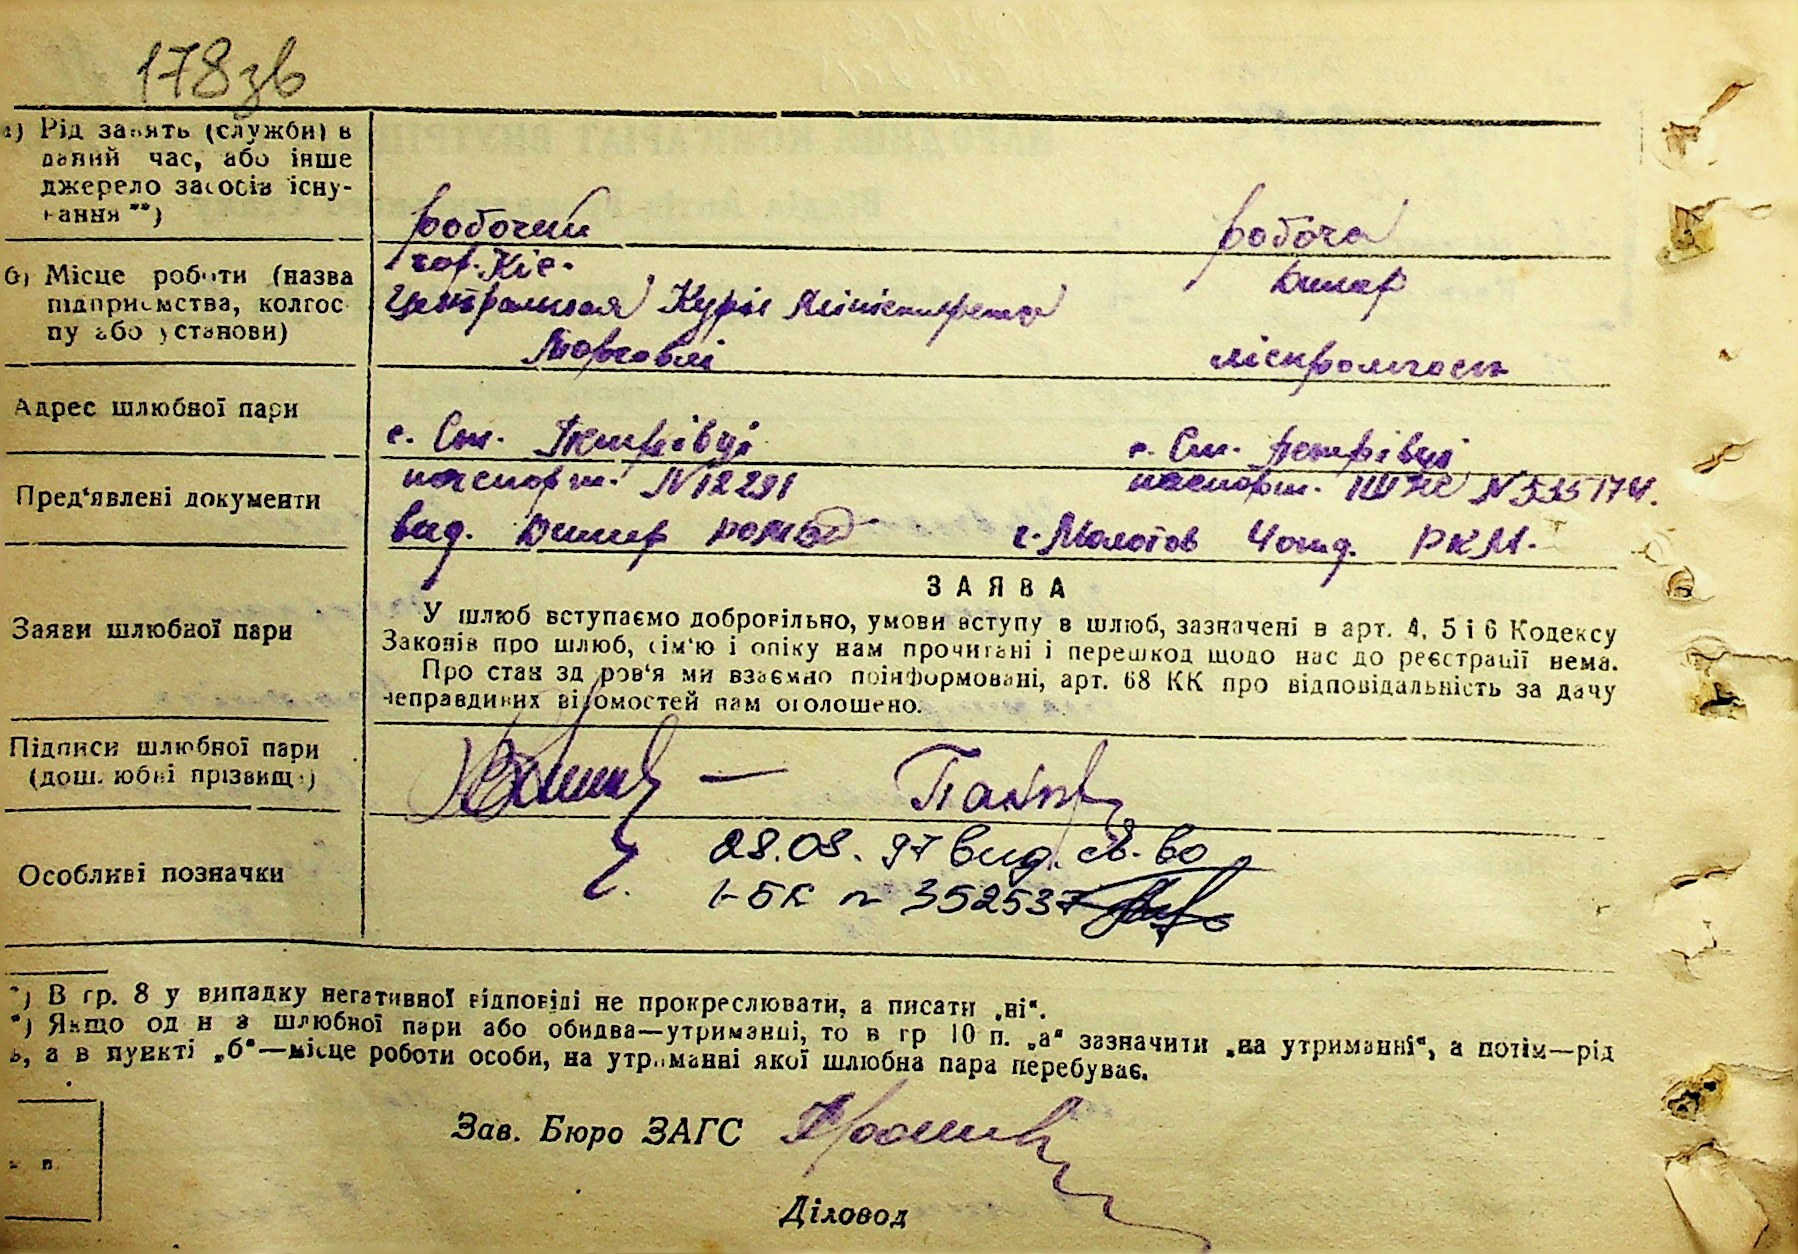 178зв
а) Рід занять (служби) в
даний час, або інше
джерело засобів існу-
вання **)
робочий
робоча
б) Місце роботи (назва
підприємства, колгос-
пу або установи)
гор. Киє.
Димер
Міністерства
Торговлі
ліспромгосп
Адрес шлюбної пари
с. Ст. Петрівці
с. Ст. Петрівці
Пред'явлені документи
паспорт. N 12291
паспорт. N 535174.
вид. Димер
г. Молотов 4 отд. РКМ.
Заяви шлюбної пари
ЗАЯВА
У шлюб вступаємо добровільно, умови вступу в шлюб, зазначені в арт. 4, 5 і 6 Кодексу
Законів про шлюб, сім'ю і опіку нам прочитані і перешкод щодо нас до реєстрації нема.
Про стан здоров'я ми взаємно поінформовані, арт. 68 КК про відповідальність за дачу
неправдивих відомостей нам оголошено.
Підписи шлюбної пари
(дошлюбні прізвища)
Особливі позначки
28.08.97 вид. св-во
І-БК № 352537
*) В гр. 8 у випадку негативної відповіді не прокреслювати, а писати „ні“.
*) Якщо один з шлюбної пари або обидва—утриманці, то в гр 10 п. „а“ зазначити „на утриманні“, а потім—рід
ь, а в пункті „б“—місце роботи особи, на утриманні якої шлюбна пара перебуває.
Зав. Бюро ЗАГС
Діловод